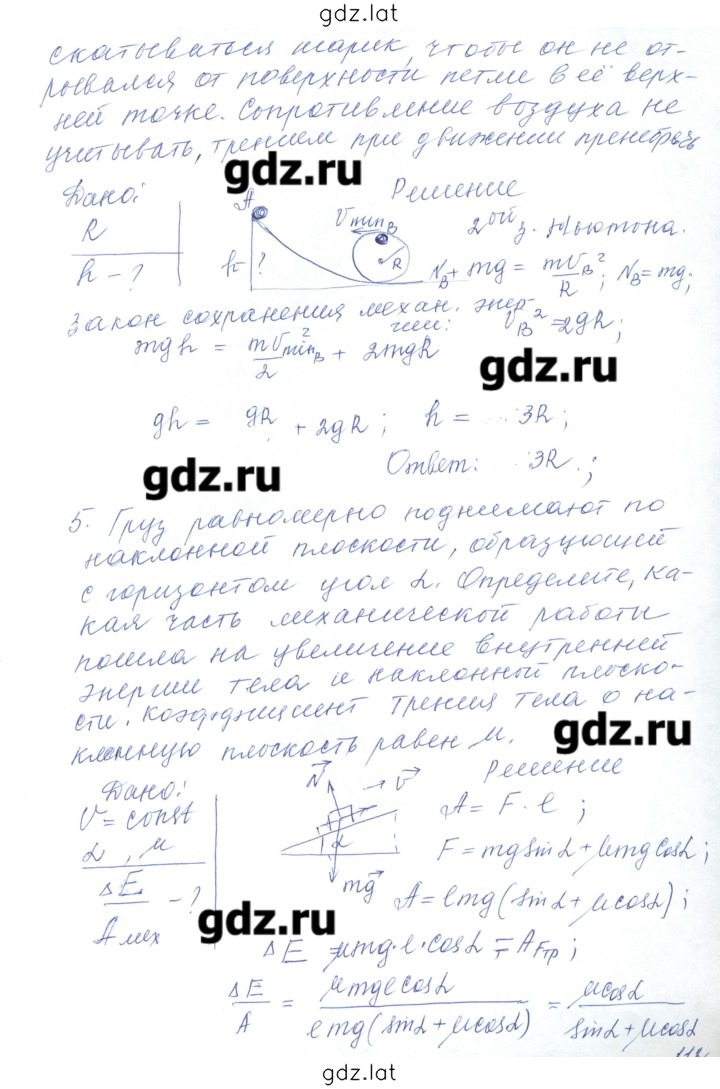 gdz.lat
скатываться шарик, чтобы он не от-
рывался от поверхности петли в её верх-
ней точке. Сопротивление воздуха не
учитывать, трением при движении пренебречь
gdz.ru
Дано: Решение
R
h - ?
A
h ?
Vmin B
R
2ой з. Ньютона.
N_B + mg = mV_B²/R ; N_B = mg;
Закон сохранения механ. энер-
гии: V_B² = 2gR;
mgh = mV²min B/2 + 2mgR
gdz.ru
gh = gR + 2gR ; h = 3R ;
Ответ: 3R. ;
gdz.ru
5. Груз равномерно поднимают по
наклонной плоскости, образующей
с горизонтом угол α. Определите, ка-
кая часть механической работы
пошла на увеличение внутренней
энергии тела и наклонной плоско-
сти. Коэффициент трения тела о на-
клонную плоскость равен μ.
gdz.ru
Дано: Решение
V = const
α, μ
ΔE/Aмех - ?
N
V
α
mg
A = F · l ;
F = mg sinα + μmg cosα ;
A = lmg(sinα + μcosα) ;
gdz.ru
ΔE = μmg·l·cosα = A_Fтр ;
ΔE/A = μmgl cosα / lmg(sinα + μcosα) = μcosα / sinα + μcosα
gdz.lat